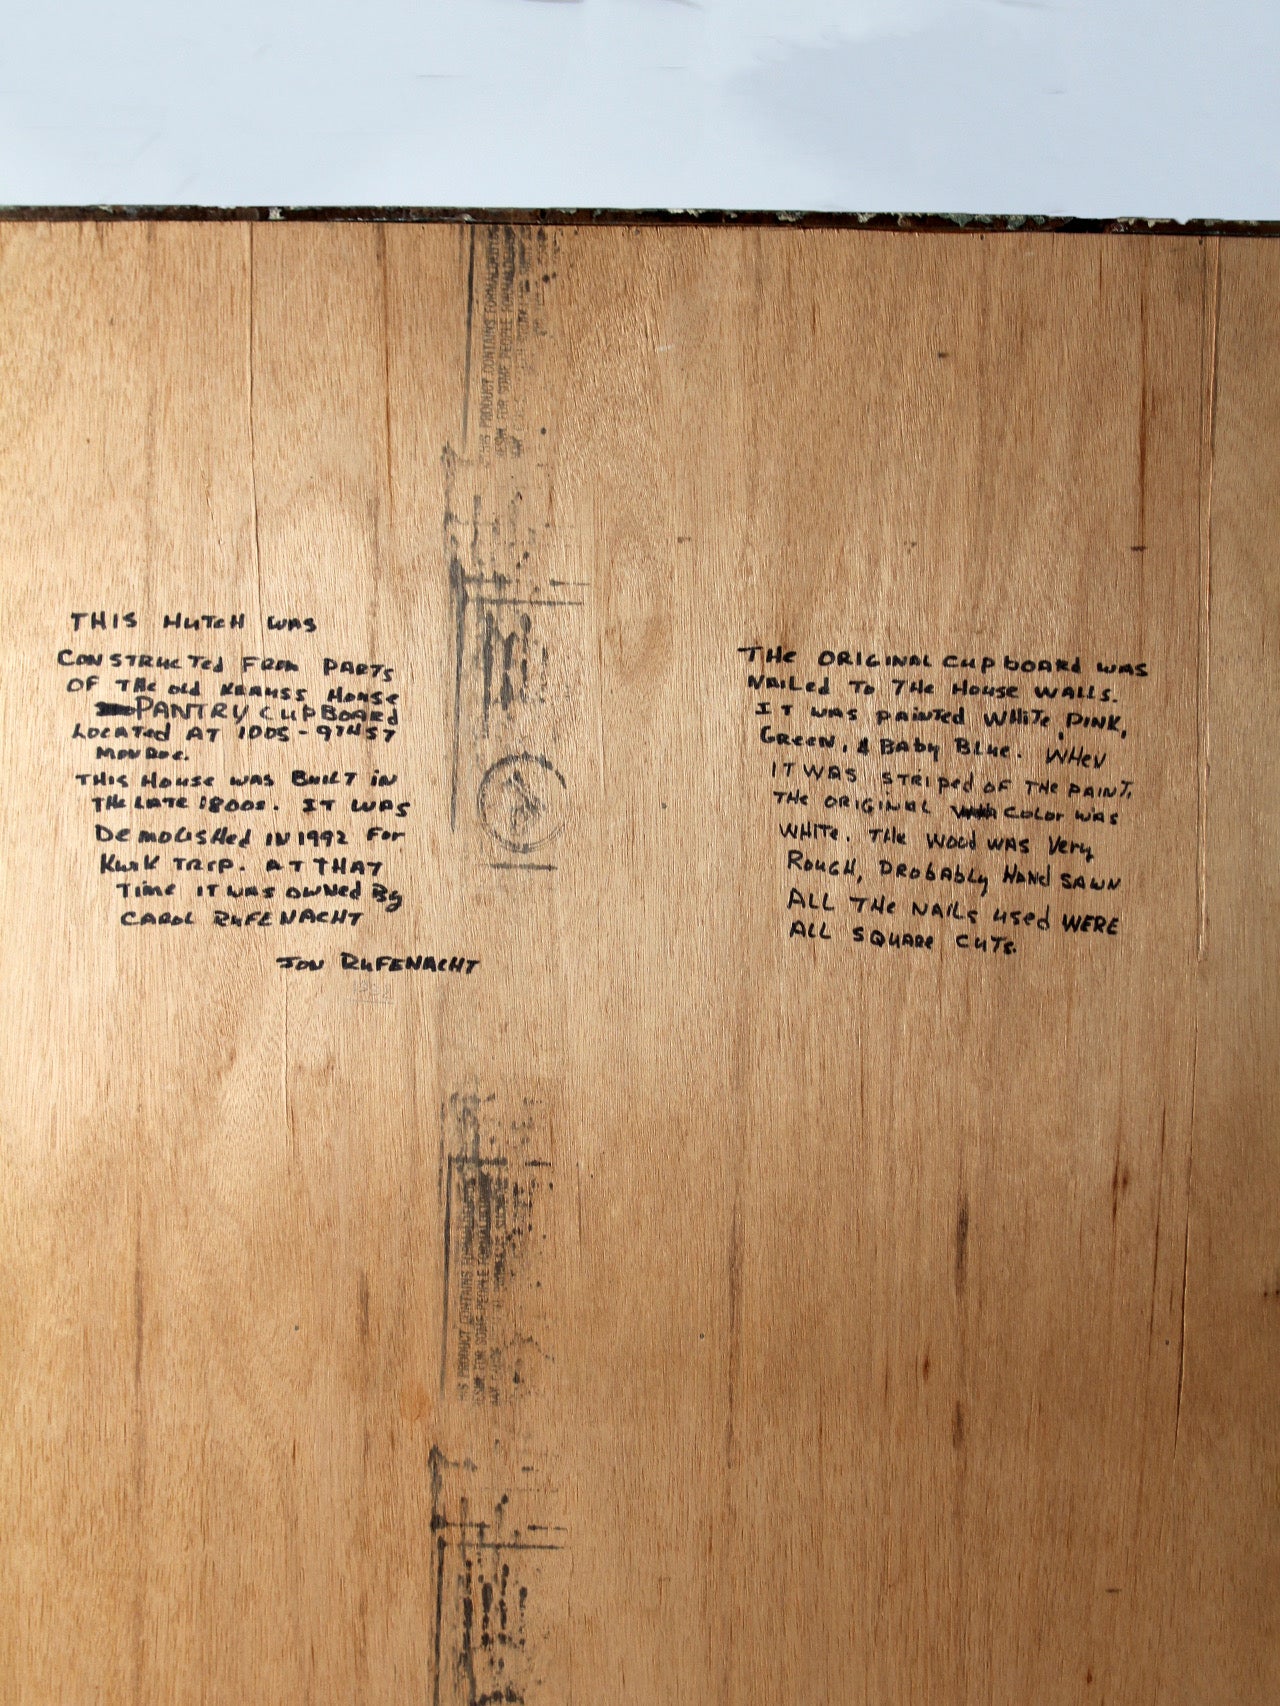 THIS HUTCH WAS
CONSTRUCTED FROM PARTS
OF THE OLD KRAUSS HOUSE
PANTRY CUPBOARD
LOCATED AT 1005 - 9TH ST
MONROE.
THIS HOUSE WAS BUILT IN
THE LATE 1800s. IT WAS
DEMOLISHED IN 1992 FOR
KWIK TRIP. AT THAT
TIME IT WAS OWNED BY
CAROL RUFENACHT
JON RUFENACHT
THE ORIGINAL CUPBOARD WAS
NAILED TO THE HOUSE WALLS.
IT WAS PAINTED WHITE, PINK,
GREEN, & BABY BLUE. WHEN
IT WAS STRIPED OF THE PAINT,
THE ORIGINAL COLOR WAS
WHITE. THE WOOD WAS VERY
ROUGH, PROBABLY HAND SAWN
ALL THE NAILS USED WERE
ALL SQUARE CUTS.
THIS PRODUCT CONTAINS FORMALDEHYDE
RESIN FOR SOME PEOPLE FORMALDEHYDE
MAY
THIS PRODUCT CONTAINS FORMALDEHYDE
RESIN FOR SOME PEOPLE FORMALDEHYDE
MAY CAUSE